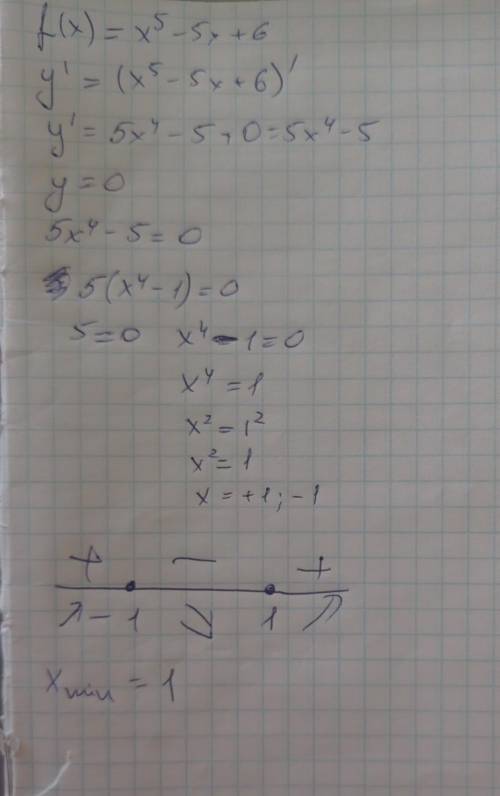 f(x) = x⁵ - 5x + 6
y' = (x⁵ - 5x + 6)'
y' = 5x⁴ - 5 + 0 = 5x⁴ - 5
y = 0
5x⁴ - 5 = 0
5(x⁴ - 1) = 0
5 = 0 x⁴ - 1 = 0
x⁴ = 1
x² = 1²
x² = 1
x = +1; -1
+ — +
↗ -1 ↘ 1 ↗
xmin = 1